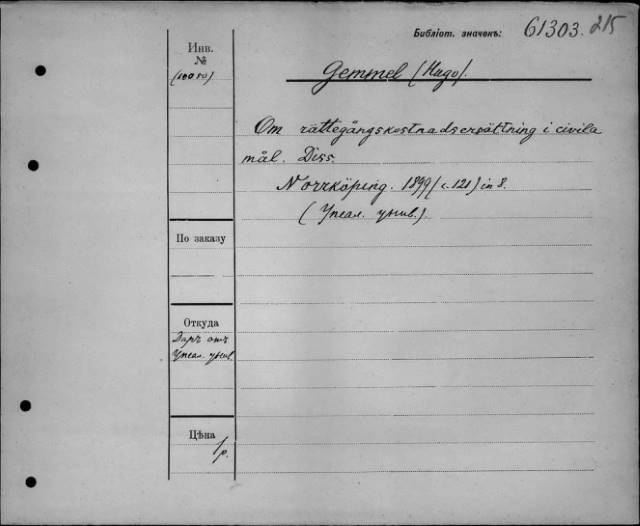 Библіот. значекъ: 61303. 215
Инв.
№
Gemmel (Hugo).
Om rättegångskostnadsersättning i civila
mål. Diss.
Norrköping. 1899 (с. 121) in 8.
(Упсал. унив.)
По заказу
Откуда
Даръ отъ
Упсал. унив
Цѣна
1 р.